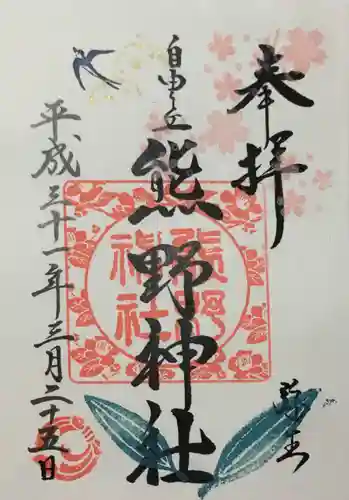 奉拝
自由之丘
熊野神社
平成三十一年三月二十五日
熊野
神社